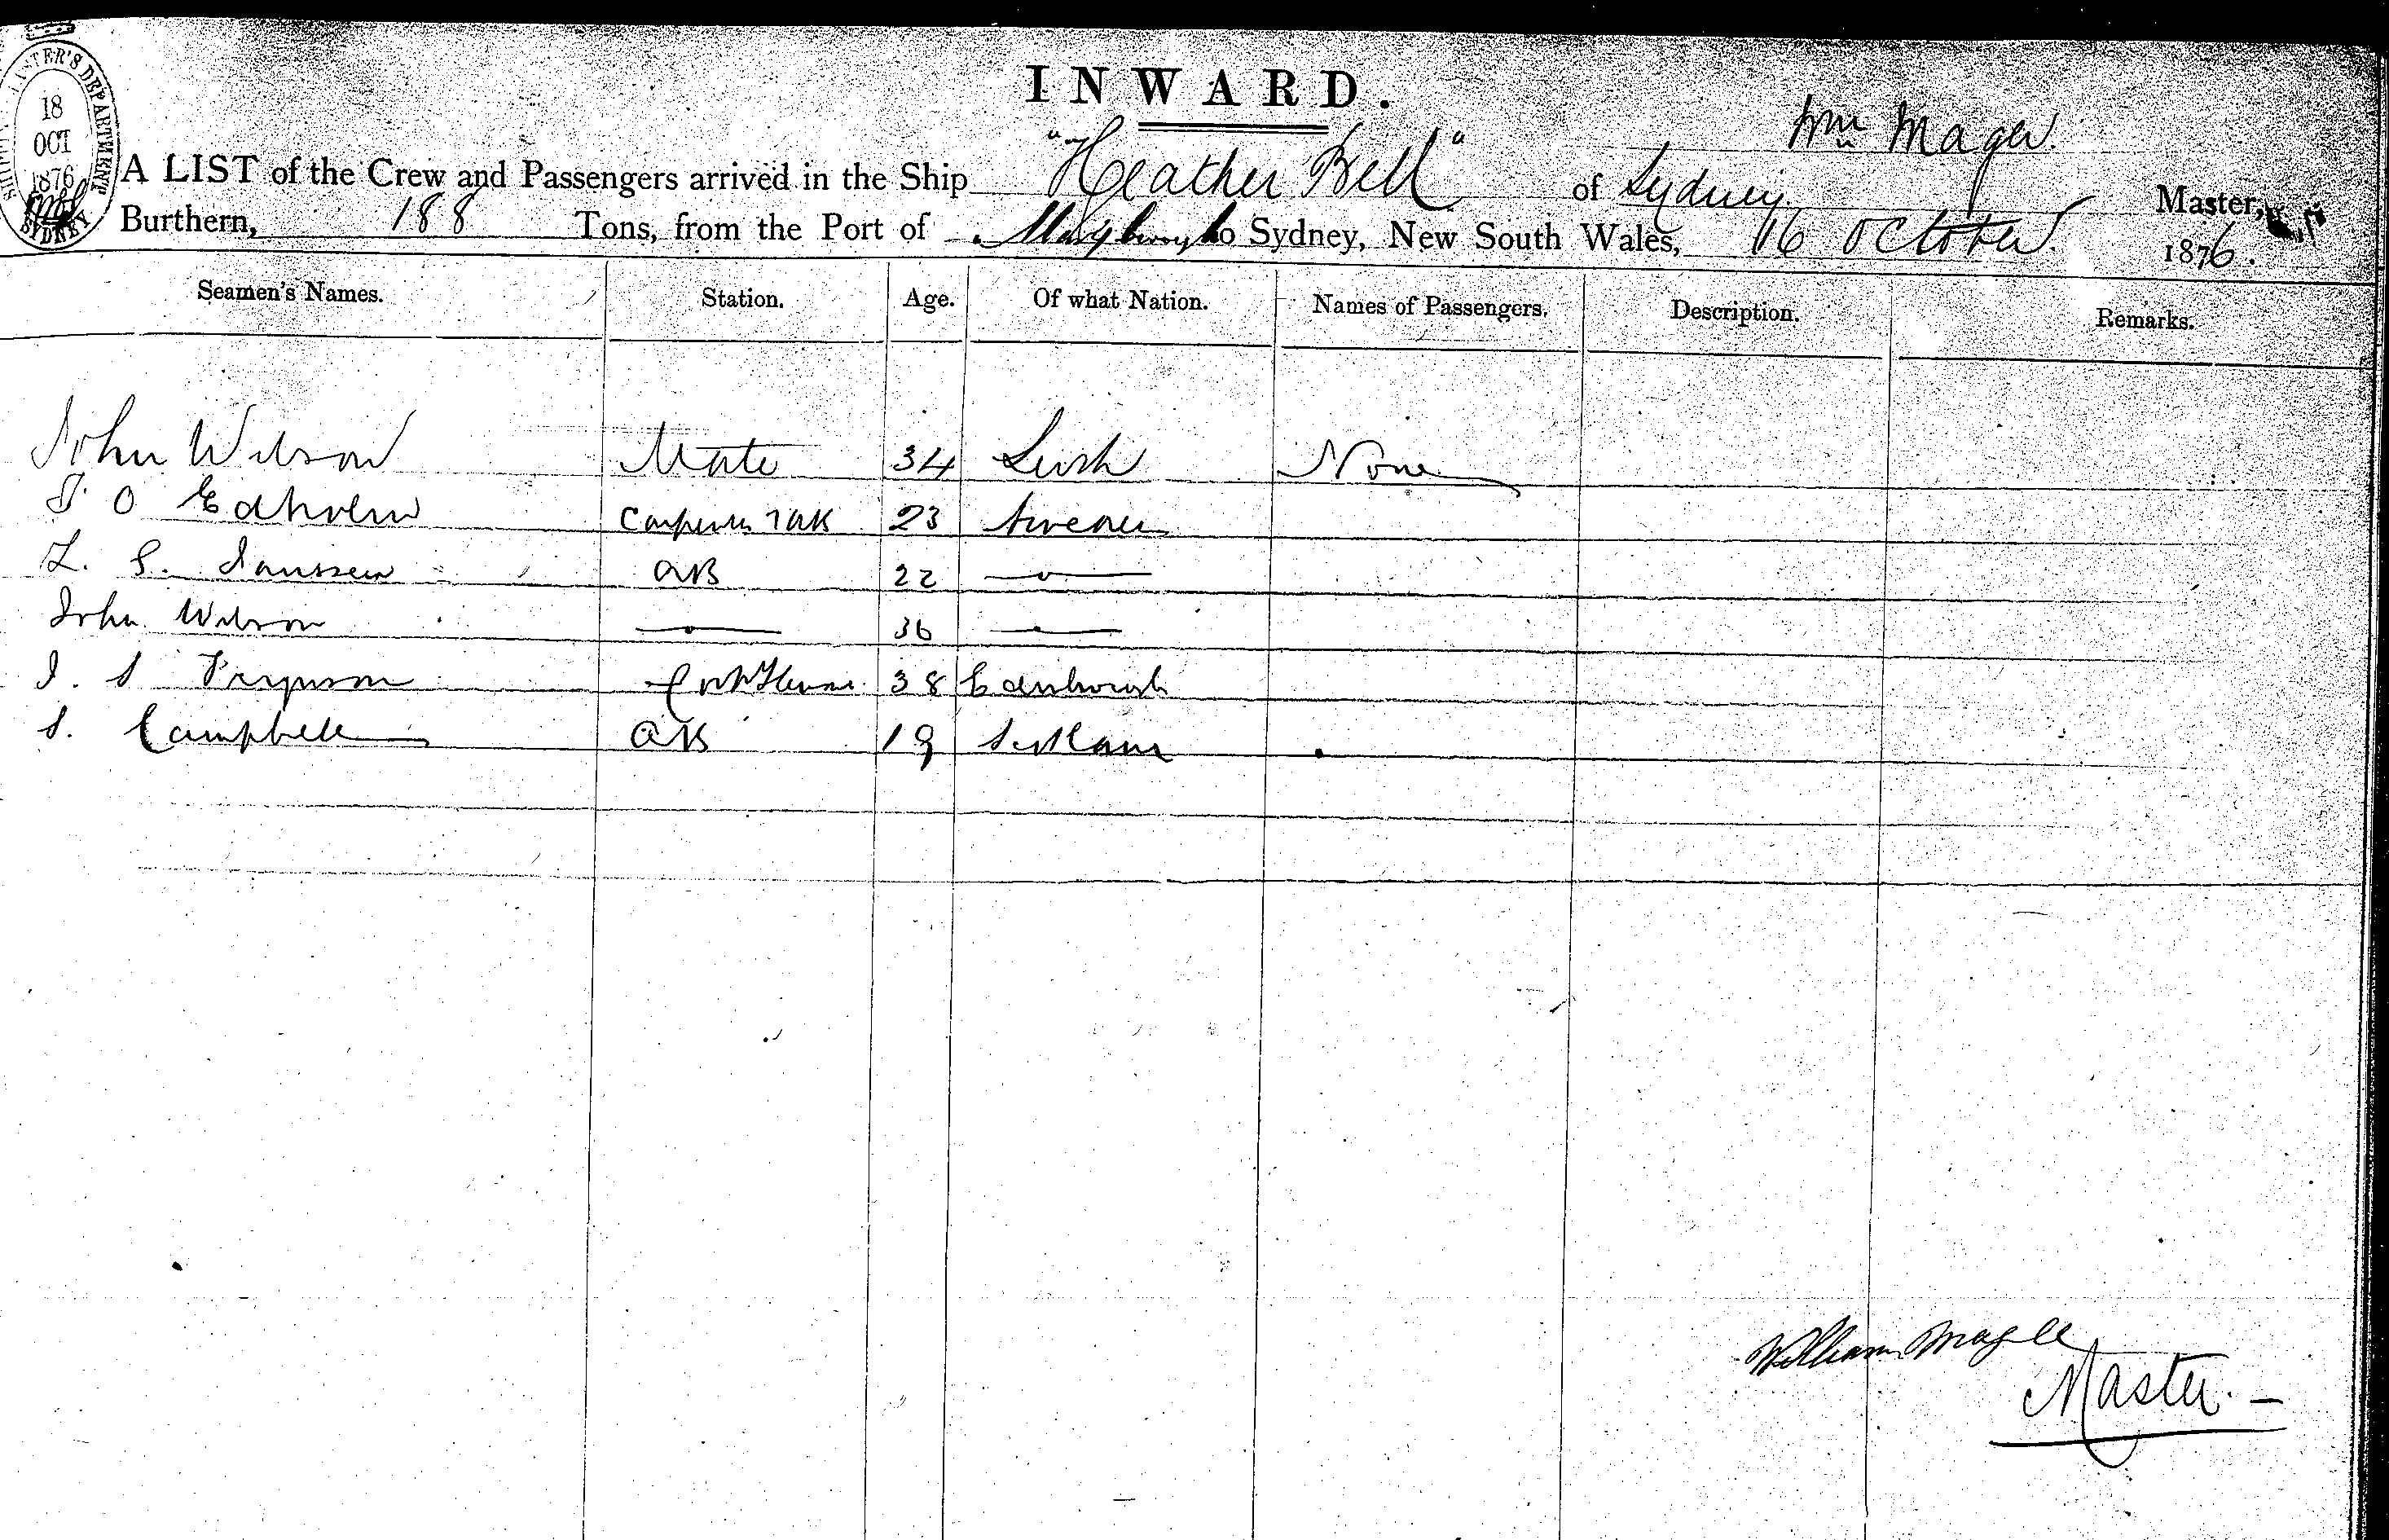 INWARD.
SHIPPING MASTER'S DEPARTMENT
18
OCT
1876
SYDNEY
Wm Magee
A LIST of the Crew and Passengers arrived in the Ship "Heather Bell" of Sydney Master,
Burthern, 188 Tons, from the Port of Maryboro to Sydney, New South Wales, 16 October 1876.
Seamen's Names. Station. Age. Of what Nation. Names of Passengers. Description. Remarks.
John Wilson Mate 34 None
O Edholm Carpenter & AB 23 Sweden
L. Janssen AB 22 —"—
John Wilson —"— 36 —"—
J. S Ferguson Cook & Steward 38 Edinburgh
S. Campbell AB 19 Scotland
William Magee
Master. —